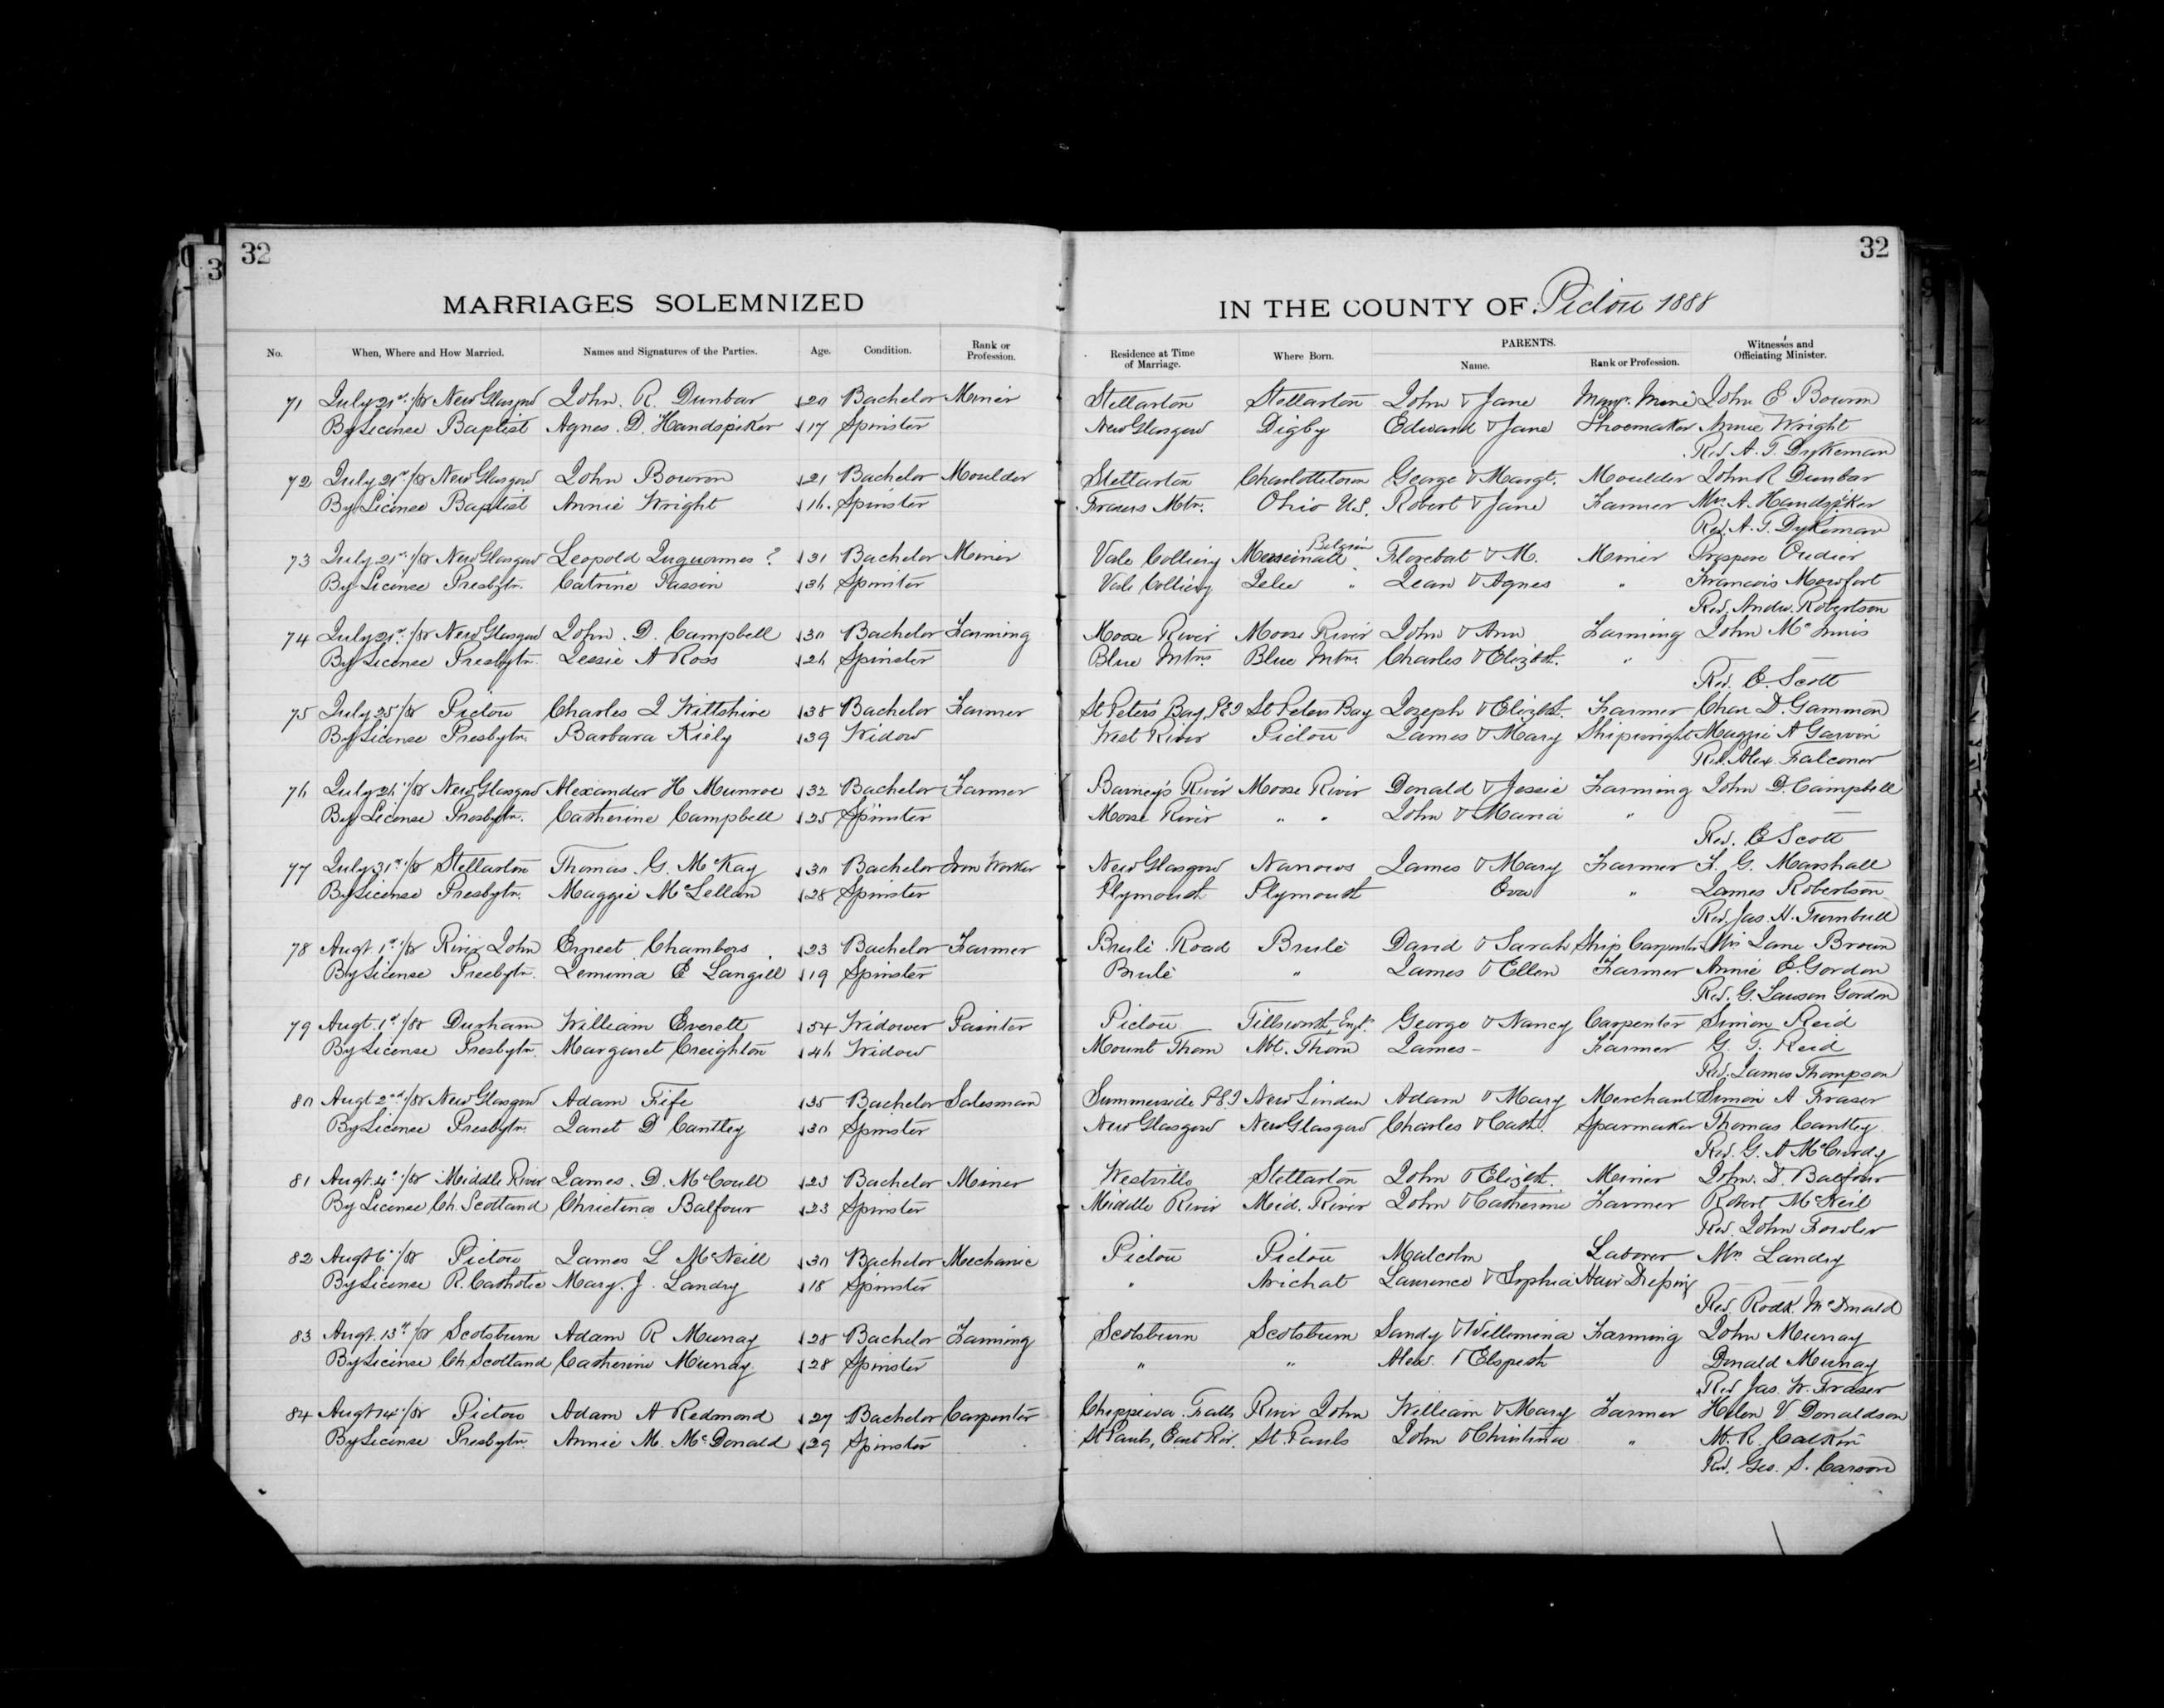 32
32
3
MARRIAGES SOLEMNIZED
IN THE COUNTY OF Pictou 1888
No. When, Where and How Married. Names and Signatures of the Parties. Age. Condition. Rank or Profession. Residence at Time of Marriage. Where Born. PARENTS. Name. Rank or Profession. Witnesses and Officiating Minister.
71 July 21st/88 New Glasgow John. R. Dunbar 20 Bachelor Miner Stellarton Stellarton John & Jane Mangr. Mine John E Bowron
By License Baptist Agnes. D. Handspiker 17 Spinster New Glasgow Digby Edward & Jane Shoemaker Annie Wright
Rev. A. T. Dykeman
72 July 21st/88 New Glasgow John Bowron 21 Bachelor Moulder Stellarton Charlottetown George & Margt. Moulder John R Dunbar
By License Baptist Annie Wright 16. Spinster Frasers Mtn. Ohio U.S. Robert & Jane Farmer Mrs. A. Handspiker
Rev. A. T. Dykeman
73 July 21st/88 New Glasgow Leopold ? 31 Bachelor Miner Vale Colliery Belgium Florebat & M. Miner Prospere Oudier
By License Presbytn. Catrine Passin 36 Spinster Vale Colliery " Jean & Agnes " Francois Mowfort
Rev. Andw. Robertson
74 July 21st/88 New Glasgow John. D. Campbell 30 Bachelor Farming Moose River Moose River John & Ann Farming John McInnis
By License Presbytn. Jessie A Ross 26 Spinster Blue Mtns Blue Mtn. Charles & Elizbth. "
Rev. E. Scott
75 July 25/88 Pictou Charles J Wiltshire 38 Bachelor Farmer St Peters Bay, P.E.I St Peters Bay Joseph & Elizbth. Farmer Chas D. Gammon
By License Presbytn. Barbara Kiely 39 Widow West River Pictou James & Mary Shipwright Maggie A Garvin
Rev. Alex. Falconer
76 July 26th/88 New Glasgow Alexander H Munroe 32 Bachelor Farmer Barney's River Moose River Donald & Jessie Farming John D. Campbell
By License Presbytn. Catherine Campbell 25 Spinster Moose River " " John & Maria "
Rev. E Scott
77 July 31st/88 Stellarton Thomas. G. McKay 30 Bachelor Iron Worker New Glasgow Narrows James & Mary Farmer F. G. Marshall
By License Presbytn. Maggie McLellan 28 Spinster Plymouth Plymouth Evan " James Robertson
Rev. Jas. H. Turnbull
78 Augt. 1st/88 River John Ernest Chambers 23 Bachelor Farmer Brulé Road Brulé David & Sarah Ship Carpenter Mrs Jane Brown
By License Presbytn. Jemima E Langill 19 Spinster Brulé " James & Ellen Farmer Annie E. Gordon
Rev. G. Lawson Gordon
79 Augt. 1st/88 Durham William Everett 54 Widower Painter Pictou Engd. George & Nancy Carpenter Simon Reid
By License Presbytn. Margaret Creighton 46 Widow Mount Thom Mt. Thom James - Farmer G. T. Reid
Rev. James Thompson
80 Augt 2nd/88 New Glasgow Adam Fife 35 Bachelor Salesman Summerside P.E.I New Linden Adam & Mary Merchant Simon A Fraser
By License Presbytn. Janet D Cantley 30 Spinster New Glasgow New Glasgow Charles & Cath. Sparmaker Thomas Cantley
Rev. G. A McCurdy
81 Augt. 4th/88 Middle River James. D. McCoull 23 Bachelor Miner Westville Stellarton John & Elizbth. Miner John. D. Balfour
By License Ch. Scotland Christina Balfour 23 Spinster Middle River Mid. River John & Catherine Farmer Robert McNeil
Rev. John Fowler
82 Augt 6th/88 Pictou James L McNeill 30 Bachelor Mechanic Pictou Pictou Malcolm Laborer Mrs Landry
By License R. Catholic Mary. J. Landry 18 Spinster " Arichat Laurence & Sophia Hair Dressing
Rev. Rodk. McDonald
83 Augt. 13th/88 Scotsburn Adam R Murray 28 Bachelor Farming Scotsburn Scotsburn Sandy & Willomina Farming John Murray
By License Ch Scotland Catherine Murray 28 Spinster " " Alex. & Elspeth Donald Murray
Rev Jas. W. Fraser
84 Augt 14th/88 Pictou Adam A Redmond 27 Bachelor Carpenter Chippewa Falls River John William & Mary Farmer Helen V Donaldson
By License Presbytn. Annie M. McDonald 29 Spinster St Pauls, East Riv. St. Pauls John & Christina " M. R. Calkin
Rev. Geo. S. Carson